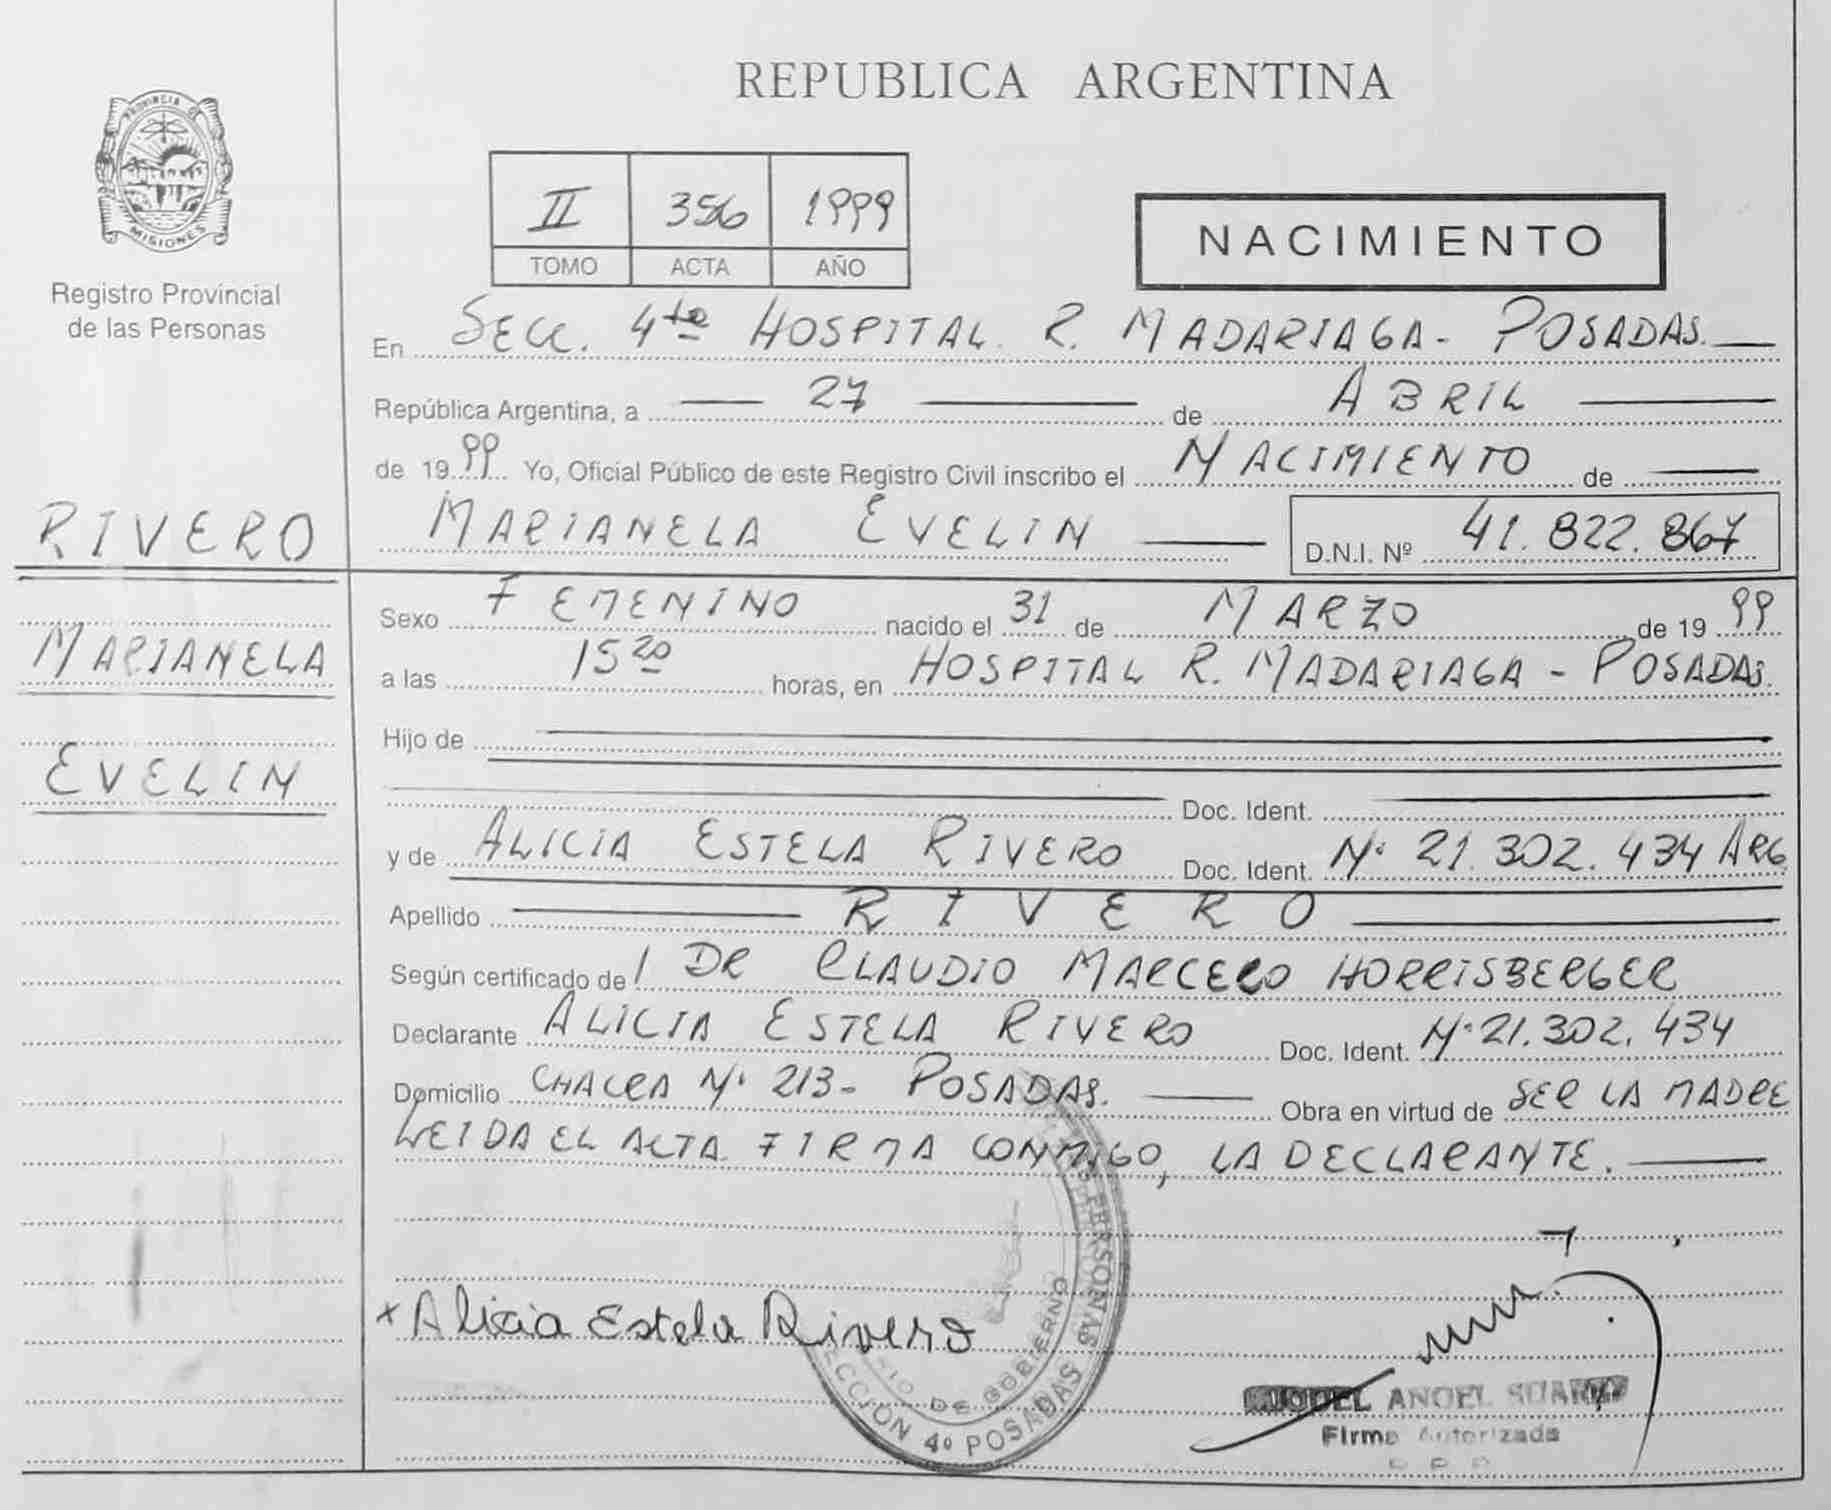 REPUBLICA ARGENTINA
PROVINCIA DE
MISIONES
Registro Provincial
de las Personas
II 356 1999
TOMO ACTA AÑO
NACIMIENTO
En SECC. 4ta HOSPITAL R. MADARIAGA - POSADAS.
República Argentina, a 27 de ABRIL
de 1999 Yo, Oficial Público de este Registro Civil inscribo el NACIMIENTO de
RIVERO
MARIANELA EVELIN D.N.I. Nº 41.822.867
Sexo FEMENINO nacido el 31 de MARZO de 1999
MARIANELA
a las 15 20 horas, en HOSPITAL R. MADARIAGA - POSADAS.
Hijo de
EVELIN
Doc. Ident.
y de ALICIA ESTELA RIVERO Doc. Ident. Nº 21.302.434 ARG
Apellido RIVERO
Según certificado de DR CLAUDIO MARCELO HORRISBERGER
Declarante ALICIA ESTELA RIVERO Doc. Ident. Nº 21.302.434
Domicilio CHACRA Nº 213 - POSADAS. Obra en virtud de SER LA MADRE
LEIDA EL ACTA FIRMA CONMIGO, LA DECLARANTE.
x Alicia Estela Rivero
PERSONAS
DE GOBIERNO
SECCION 4º POSADAS
ANGEL
Firma Autorizada